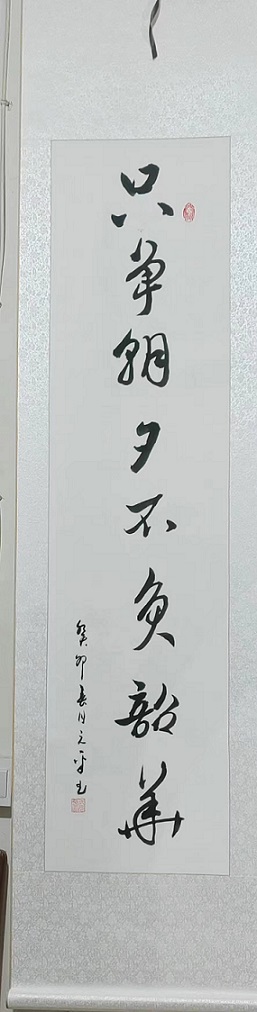 只争朝夕不负韶华
癸卯春月之平书